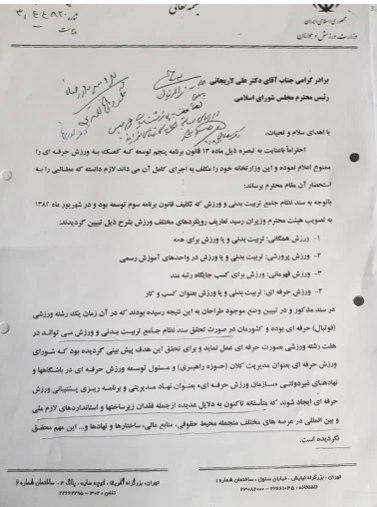 بسمه تعالی
جمهوری اسلامی ایران
وزارت ورزش و جوانان
شماره
پیوست
برادر گرامی جناب آقای دکتر علی لاریجانی
رئیس محترم مجلس شورای اسلامی
با اهدای سلام و تحیات،
احتراماً باعنایت به تبصره ذیل ماده ۱۳ قانون برنامه پنجم توسعه کـه کمـک به ورزش حرفه ای را
ممنوع اعلام نموده و این وزارتخانه خود را مکلف به اجرای کامل آن می داند لازم دانسته مطـالبی را بـه
استحضار آن مقام محترم برساند؛
باتوجه به سند نظام جامع تربیت بدنی و ورزش که تکلیف قانون برنامه سوم توسعه بود و در شهریور ماه ۱۳۸۲
به تصویب هیئت محترم وزیران رسید تعاریف رویکردهای مختلف ورزش بشرح ذیل تبیین گردیدند:
۱- ورزش همگانی: تربیت بدنی و یا ورزش برای همه
۲- ورزش پرورشی: تربیت بدنی و یا ورزش در واحدهای آموزش رسمی
۳- ورزش قهرمانی: ورزش برای کسب جایگاه رتبه مند
۴- ورزش حرفه ای: تربیت بدنی و یا ورزش بعنوان کسب و کار
در سند مذکور و در تبیین وضع موجود طراحان به این نتیجه رسیده بودند که در آن زمان یک رشته ورزشی
(فوتبال) حرفه ای بوده و کشورمان در صورت تحقق سند نظام جـامع تربیـت بـدنی و ورزش مـی توانـد در
هفت رشته ورزشی بصورت حرفه ای عمل نماید و برای تحقق این هدف پیش بینی گردیده بود کـه شـورای
ورزش حرفه ای بعنوان مدیریت کلان (حوزه راهبری) و مسئول توسعه ورزش حرفـه ای در باشـگاهها و
نهادهـای غیردولتـی «سـازمان ورزش حرفـه ای» بعنـوان نهـاد مـدیریتی و برنامـه ریـزی پشـتیبانی ورزش
حرفه ای ایجاد شوند که متأسفانه تاکنون به دلایل عدیده ازجمله فقدان زیرساختها و استانداردهای لازم ملی
و بین المللی در عرصه های مختلف منجمله محیط حقوقی، منابع مالی، ساختارها و نهادها و... این مهم محقـق
نگردیده است.
تهران، بزرگراه نیایش، خیابان سئول، ساختمان شماره ۱
تهران، بزرگراه آفریقا، کوچه سایه، پلاک ۴، ساختمان شماره ۶